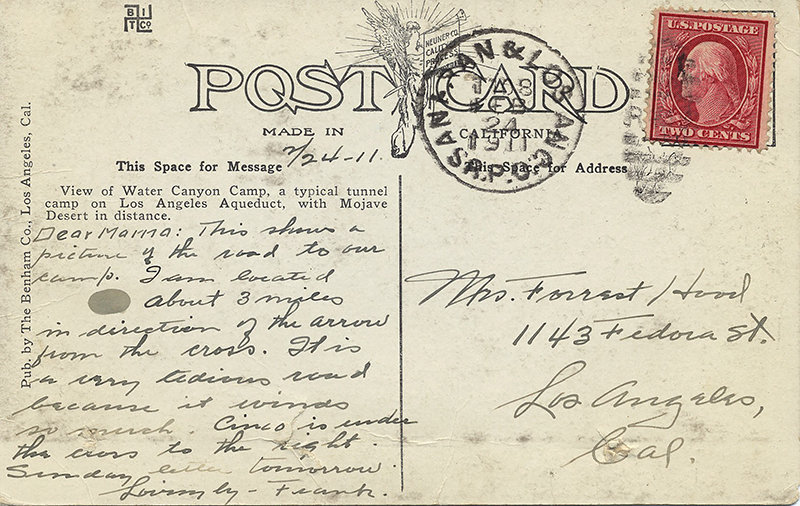 BIT Co
NEUNER CO.
POST CARD
MADE IN CALIFORNIA
SAN FRAN & LOS ANG.
FEB
24
1911
R.P.O.
U.S. POSTAGE
TWO CENTS
This Space for Message
2/24-11.
This Space for Address
View of Water Canyon Camp, a typical tunnel
camp on Los Angeles Aqueduct, with Mojave
Desert in distance.
Dear Mama: This shows a
picture of the road to our
camp. I am located
about 3 miles
in direction of the arrow
from the cross. It is
a very tedious road
because it winds
so much. Cinco is under
the cross to the right.
Sunday letter tomorrow.
Lovingly - Frank.
Mrs. Forrest Hood
1143 Fedora St.
Los Angeles,
Cal.
Pub. by The Benham Co., Los Angeles, Cal.